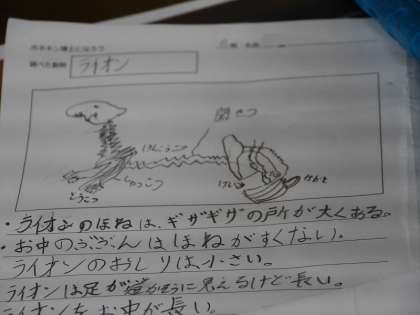 ホネホネ博士になろう
調べた動物 ライオン
けんこうこつ
しゃっこつ
とうこつ
・ライオンのほねは、ギザギザの所が大くある。
・お中のぶぶんはほねがすくない。
ライオンのおしりは小さい。
ライオンは足が
に見えるけど長い。
お中が長い。